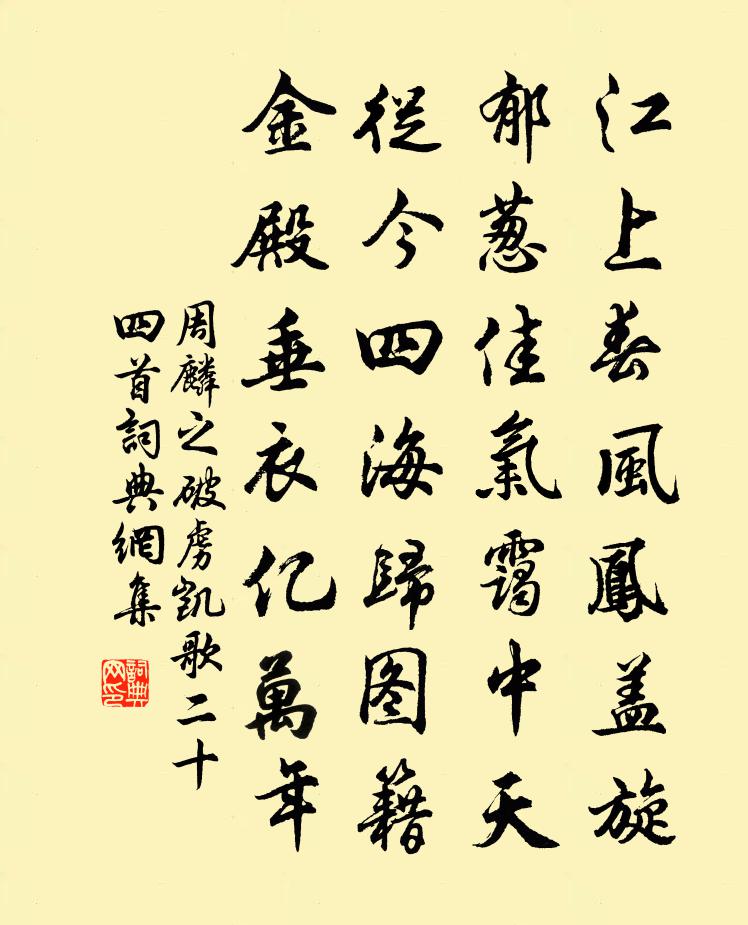 江上春風鳳盖旋
郁葱佳氣靄中天
從今四海歸图籍
金殿垂衣亿萬年
周麟之破虏凯歌二十
四首詞典網集
詞典
网印